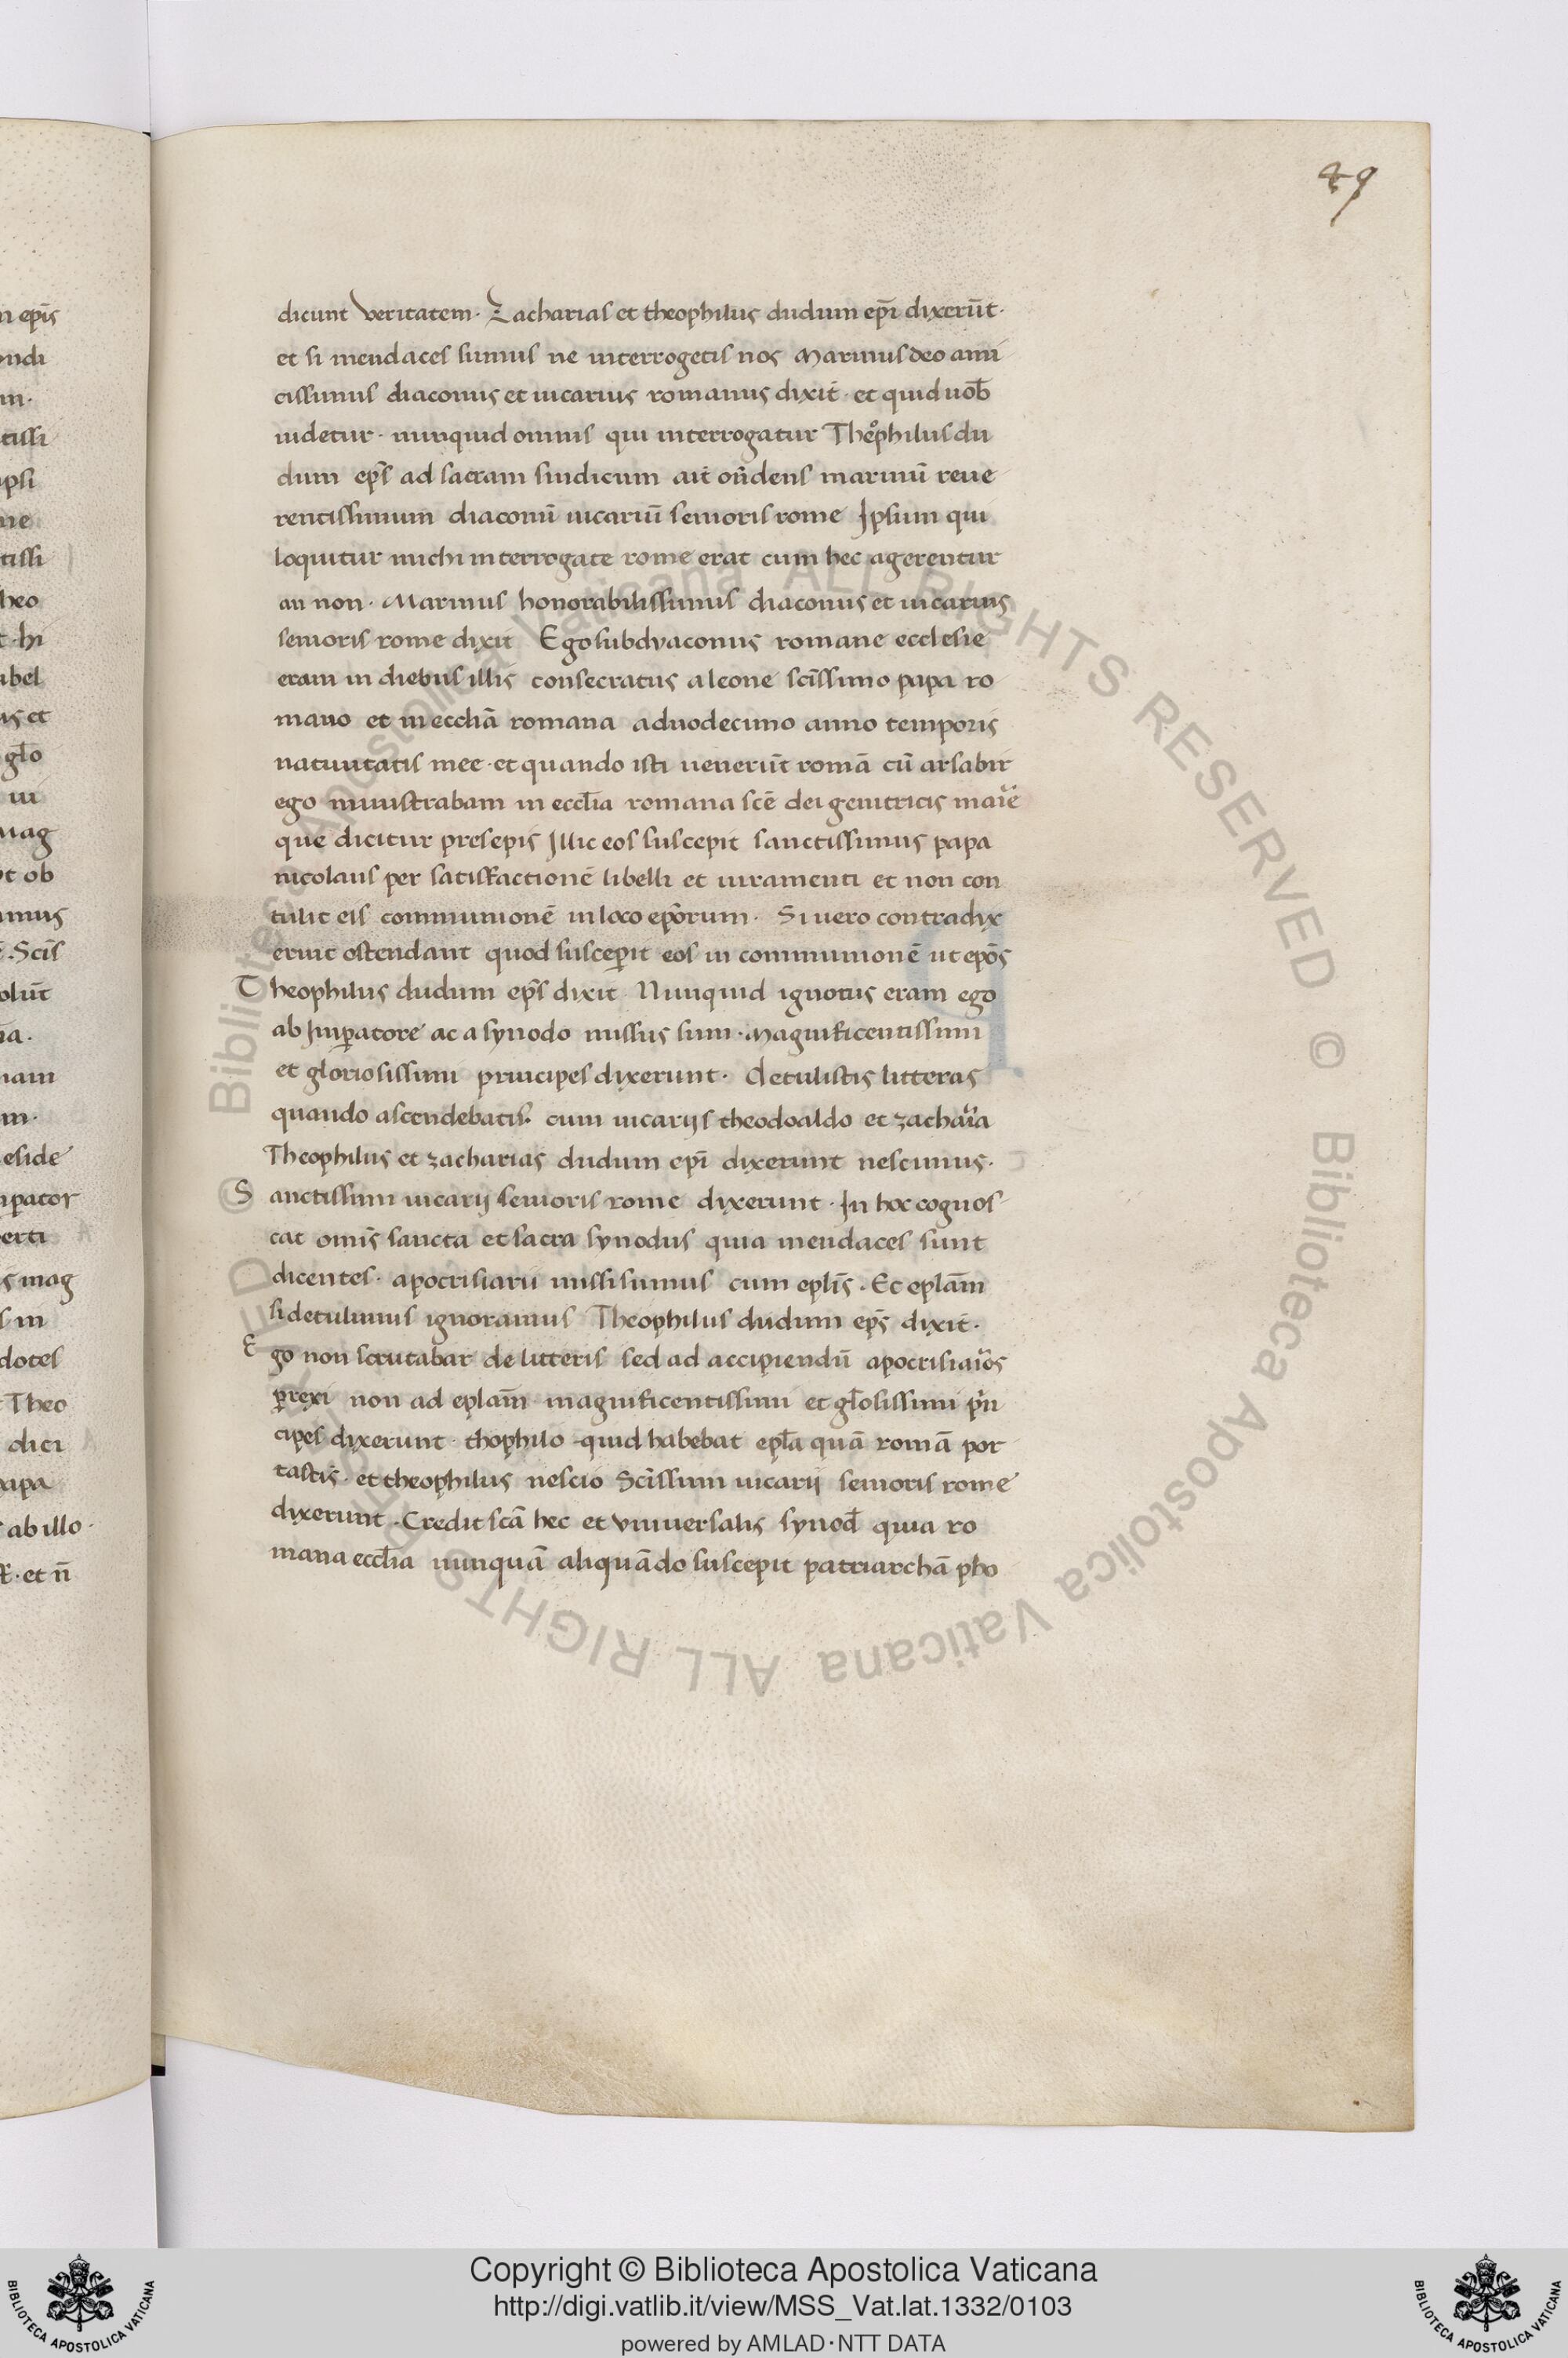 49
dicunt veritatem. Zacharias et theophilus dudum ep̄i dixerūt.
et si mendaces sumus ne interrogetis nos Marinus deo ami
cissimus diaconus et uicarius romanus dixit. et quid uob̄
uidetur. nunquid omnis qui interrogatur Theophilus du
dum ep̄s ad sacram sindicum ait on̄dens marinū reue
rentissimum diaconū uicariū senioris rome Ipsum qui
loquitur michi interrogate rome erat cum hec agerentur
an non. Marinus honorabilissimus diaconus et uicarius
senioris rome dixit Ego subdyaconus romane ecclesie
eram in diebus illis consecratus a leone scīssimo papa ro
mano et in eccliā romana a duodecimo anno temporis
natiuitatis mee. et quando isti uenerūt romā cū arsabir
ego ministrabam in eccl̄ia romana scē dei genitricis marie
que dicitur presepis Illic eos suscepit sanctissimus papa
nicolaus per satisfactionē libelli et iuramenti et non con
tulit eis communionē in loco ep̄orum. Si uero contradix
erint ostendant quod susceperit eos in communionē ut ep̄os
Theophilus dudum ep̄s dixit Nunquid ignotus eram ego
ab Imp̄atore ac a synodo missus sum. Magnificentissimi
et gloriosissimi principes dixerunt. Detulistis litteras
quando ascendebatis. cum uicarijs theodoaldo et zacharia
Theophilus et zacharias dudum ep̄i dixerunt nescimus.
Sanctissimi uicarij senioris rome dixerunt. In hoc cognos
cat omīs sancta et sacra synodus quia mendaces sunt
dicentes. apocrisiarii missi sumus cum ep̄lis. Et ep̄lam
si detulimus ignoramus Theophilus dudum ep̄s dixit.
Ego non scrutabar de litteris sed ad accipiendū apocrisiarios
p̄rexi non ad ep̄lam magnificentissimi et gl̄osissimi prin
cipes dixerunt. thophilo quid habebat ep̄la quā romā por
tastis. et theophilus nescio Scīssimi uicarij senioris rome
dixerunt. Credit scā hec et vniuersalis synod̄ quia ro
mana eccl̄ia nunquā aliquādo suscepit patriarchā pho
n ep̄is
ondi
tissi
ipsi
me
tissi
heo
t. hi
ibel
us et
gl̄o
ui
mag
ut ob
imus
. Scīs
olūt
nam
eside
mp̄ator
erti
s mag
s in
dotes
Theo
dici
papa
ab illo.
et n̄
© Biblioteca Apostolica Vaticana ALL RIGHTS RESERVED © Biblioteca Apostolica Vaticana ALL RIGHTS RESERVED
Copyright © Biblioteca Apostolica Vaticana
http://digi.vatlib.it/view/MSS_Vat.lat.1332/0103
powered by AMLAD·NTT DATA
BIBLIOTECA APOSTOLICA VATICANA
BIBLIOTECA APOSTOLICA VATICANA